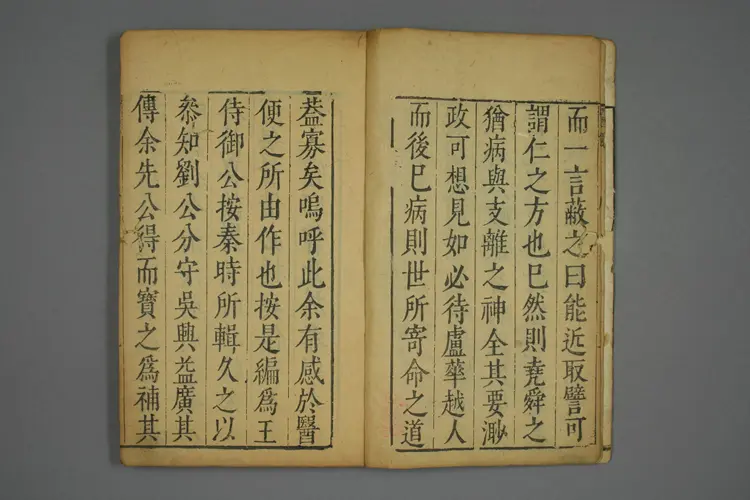 而一言蔽之曰能近取譬可
謂仁之方也已然則堯舜之
猶病與支離之神全其要渺
政可想見如必待盧華越人
而後已病則世所寄命之道
葢寡矣嗚呼此余有感於醫
便之所由作也按是編爲王
侍御公按秦時所輯久之以
叅知劉公分守吳興益廣其
傳余先公得而寶之爲補其